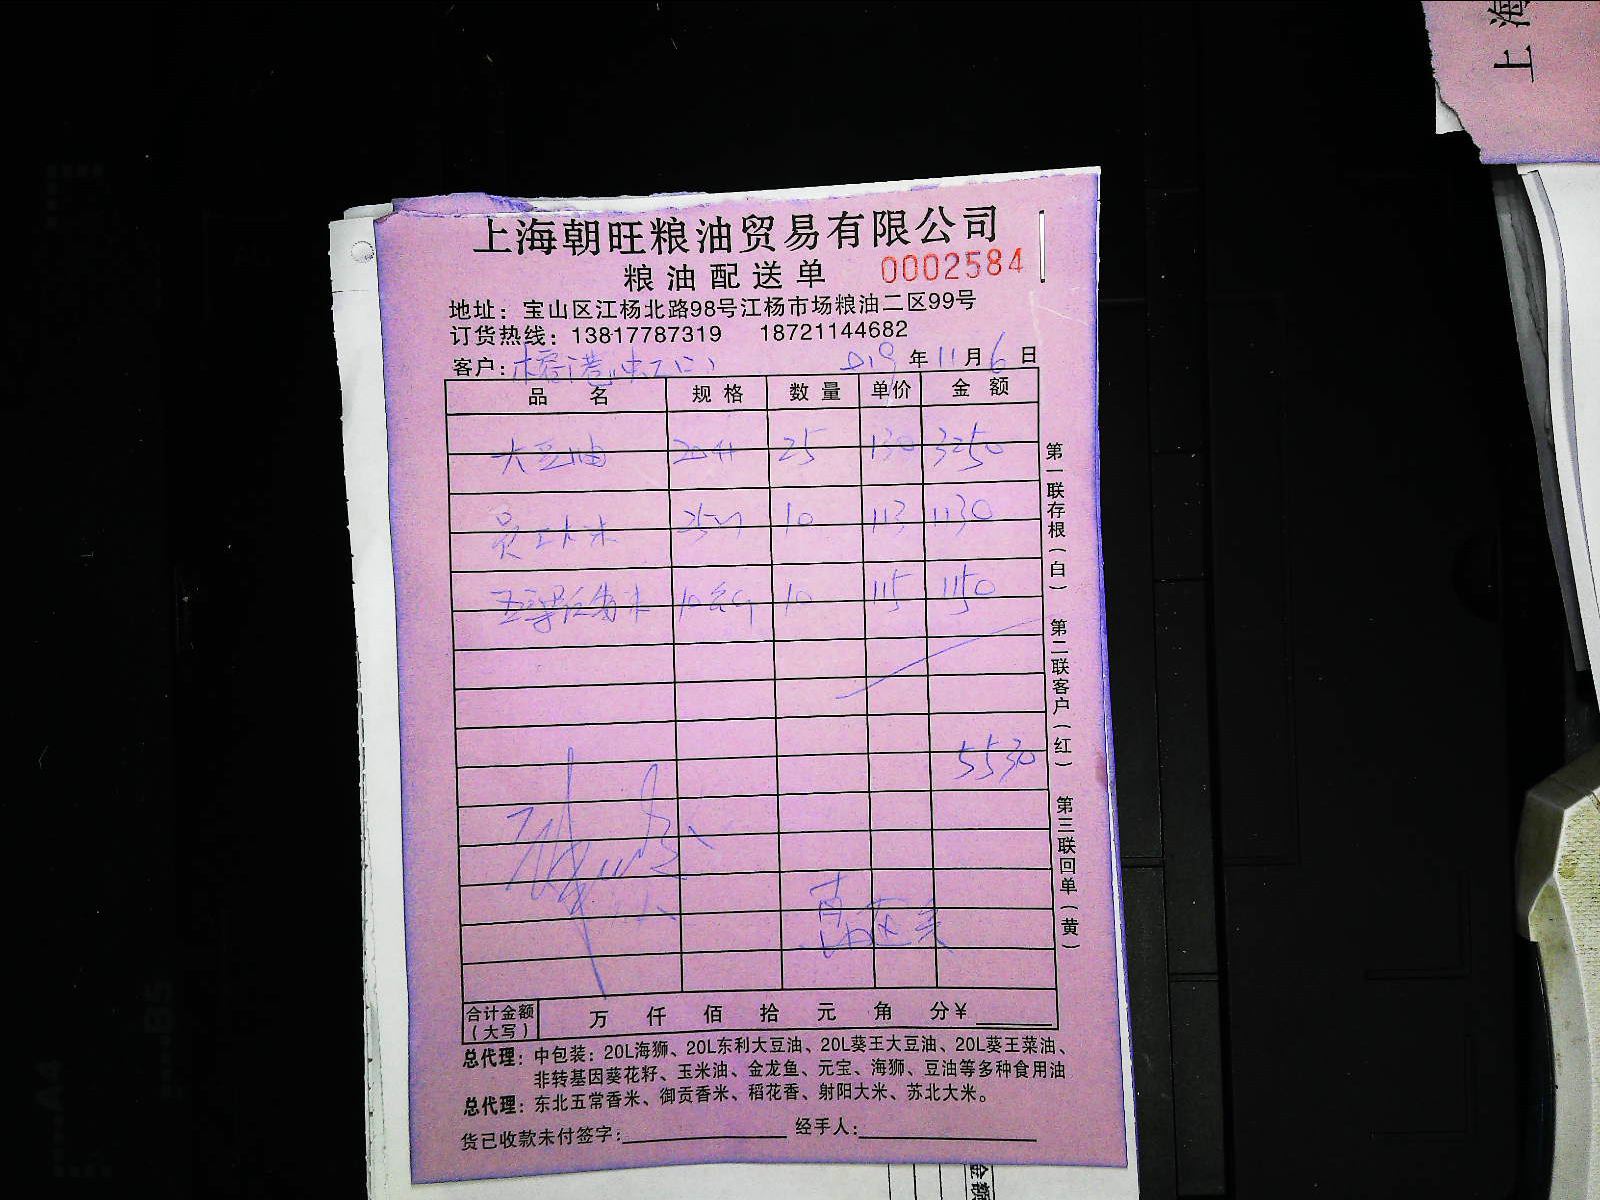 上海朝旺粮油贸易有限公司
粮油配送单 0002584
地址：宝山区江杨北路98号江杨市场粮油二区99号
订货热线：13817787319 18721144682
客户： 年11月6日
品名 规格 数量 单价 金额
大豆油 20升 25 130 3250
大米 10 113 1130
香米 10 115 1150
5530
第一联存根（白） 第二联客户（红） 第三联回单（黄）
合计金额（大写） 万 仟 佰 拾 元 角 分¥
总代理：中包装：20L海狮、20L东利大豆油、20L葵王大豆油、20L葵王菜油、
非转基因葵花籽、玉米油、金龙鱼、元宝、海狮、豆油等多种食用油
总代理：东北五常香米、御贡香米、稻花香、射阳大米、苏北大米。
货已收款未付签字： 经手人：
上海
金额